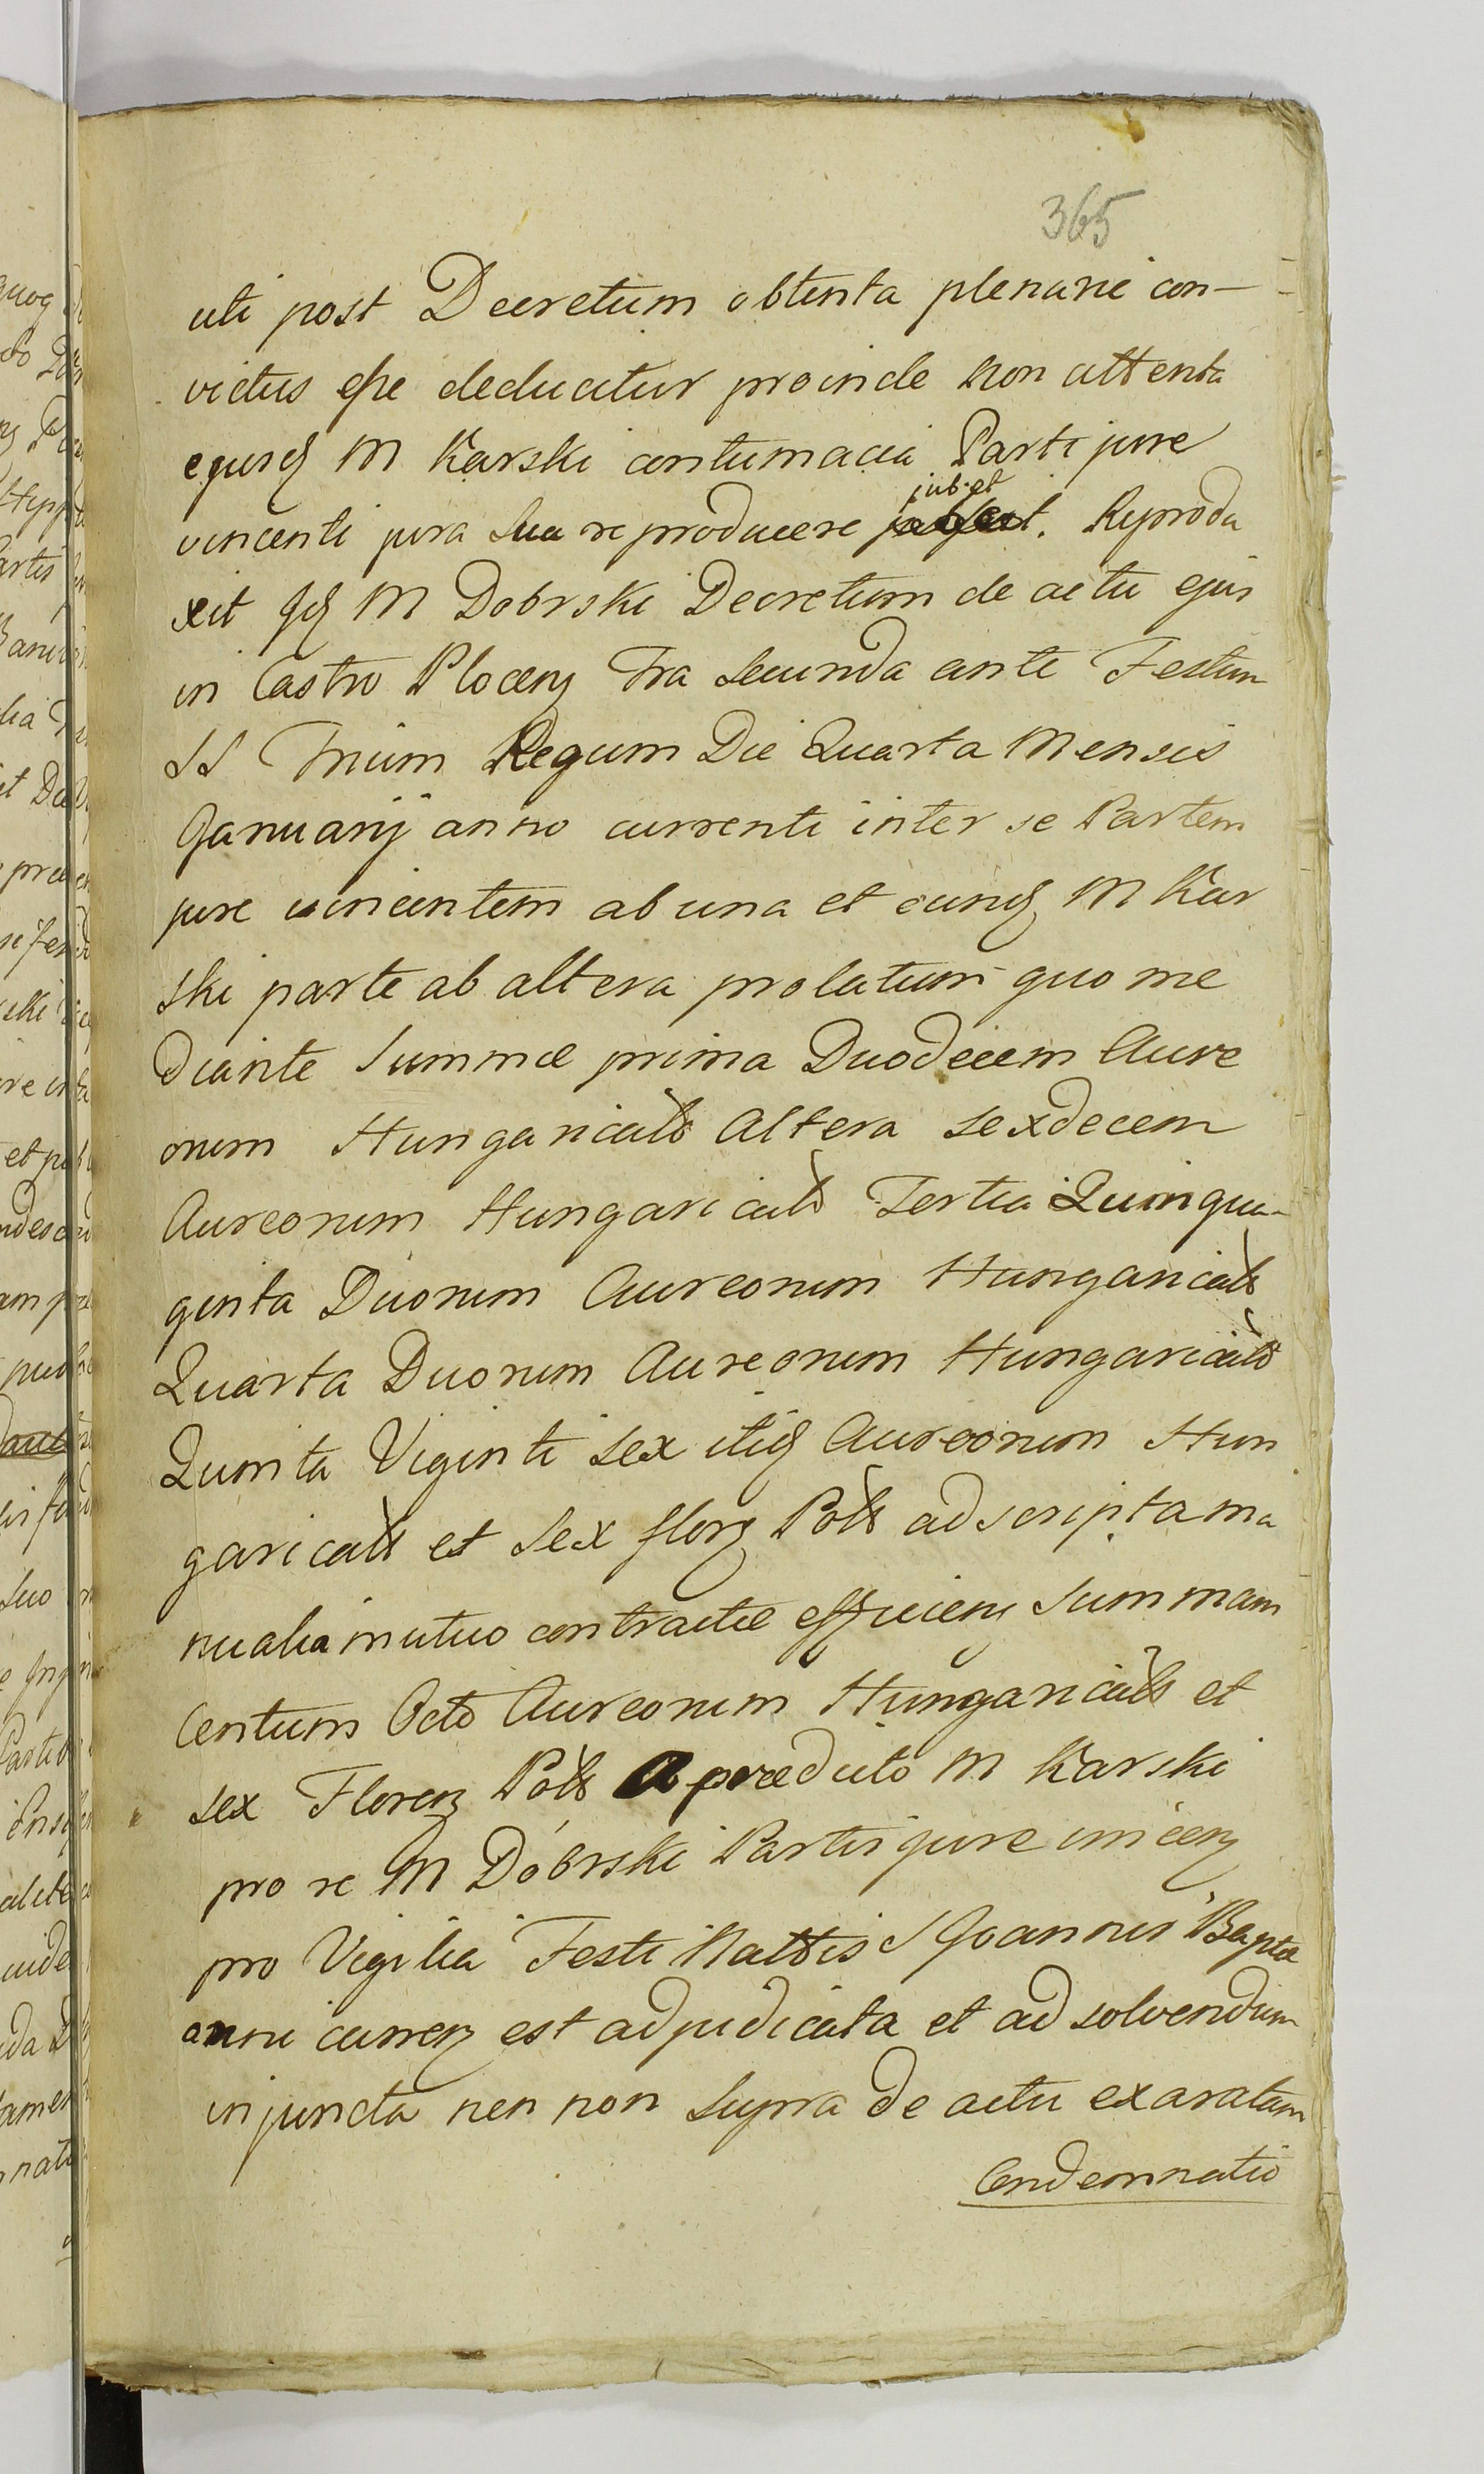 365
uti post Decretum obtenta plenarie con-
victus esse deducitur proinde non attenta
ejusq M Karski contumacia Parti jure
jubet
vincenti jura sua reproducere. Reprodu
xit Jq M Dobrski Decretum de actu ejus
in Castro Plocen Fra Secunda ante Festum
SS Trium Regum Die Quarta Mensis
Januarij anno currenti inter se Partem
jure vincentem ab una et eunq M Kar
ski parte ab altera prolatum quo me
diante Summæ prima Duodecem Aure
orum Hungaricals Altera Sexdecem
Aureorum Hungaricals Tertia Quinqua-
ginta Duorum Aureorum Hungaricals
Quarta Duorum Aureorum Hungaricals
Quinta Viginti Sex itiq Aureorum Hun
garicals et Sex flor Pols ad scripta ma
nualia mutuo contractæ efficien Summam
Centum Octo Aureorum Hungaricals et
Sex Floren Pols A præducto M Karski
pro se M Dobrski Partis jure vincen
pro Vigilia Festi Nattis S Joannis Baptæ
anni curren est adjudicata et ad solvendum
injuncta nen non Supra de actu exaratam
Condemnatio